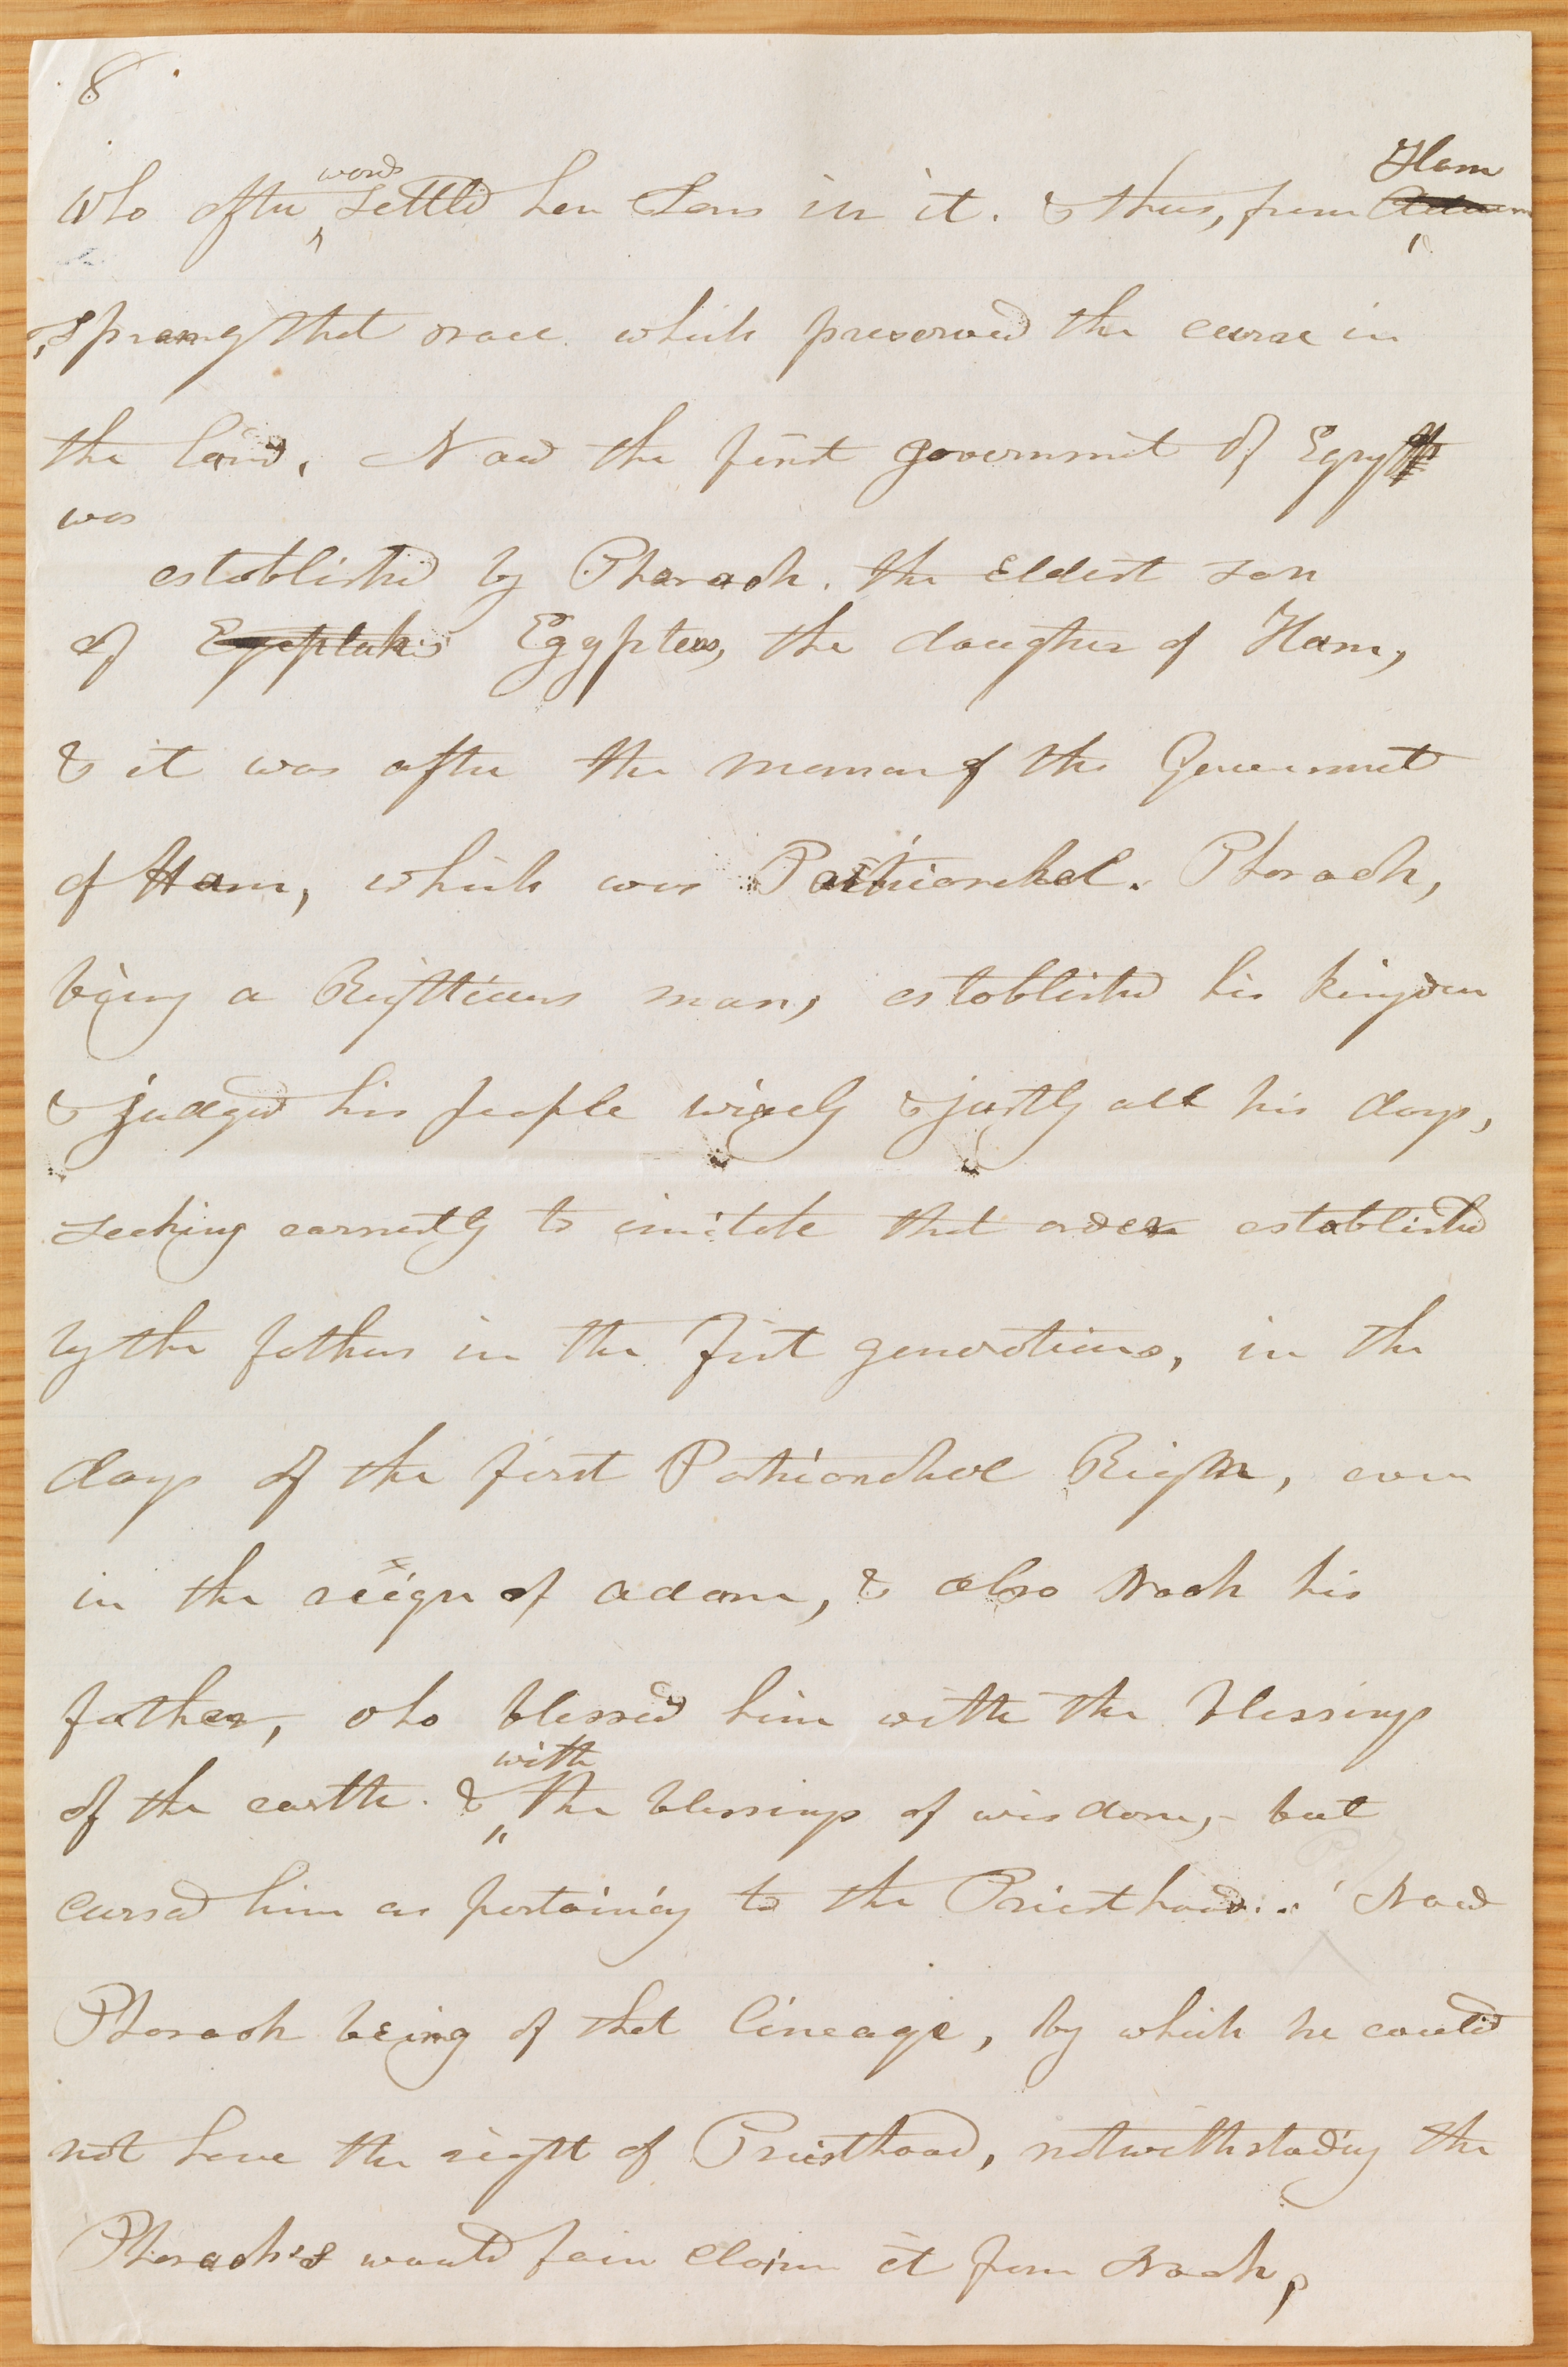 8
words
Ham
Who after settled her Sons in it. & thus, from
sprang that race which preserved the curse in
the land. Now the first government of Egypt
was
established by Pharaoh. the Eldest son
of Egyptus, the daughter of Ham,
& it was after the mannar of the Government
of Ham, which was Patriarchal. Pharaoh,
being a Righteous man, established his kingdom
& judged his people wisely & justly all his days,
seeking earnestly to imitate that order established
by the fathers in the first generations, in the
days of the first Patriarchal Reign, even
in the reign of Adam, & also Noah his
father, who blessed him with the blessings
with
of the earth. & the blessings of wisdom, but
cursed him as pertaining to the Priesthood. Now
Pharaoh being of that lineage, by which he could
not have the right of Priesthood, notwithstading the
Pharaoh's would fain claim it from Noah,